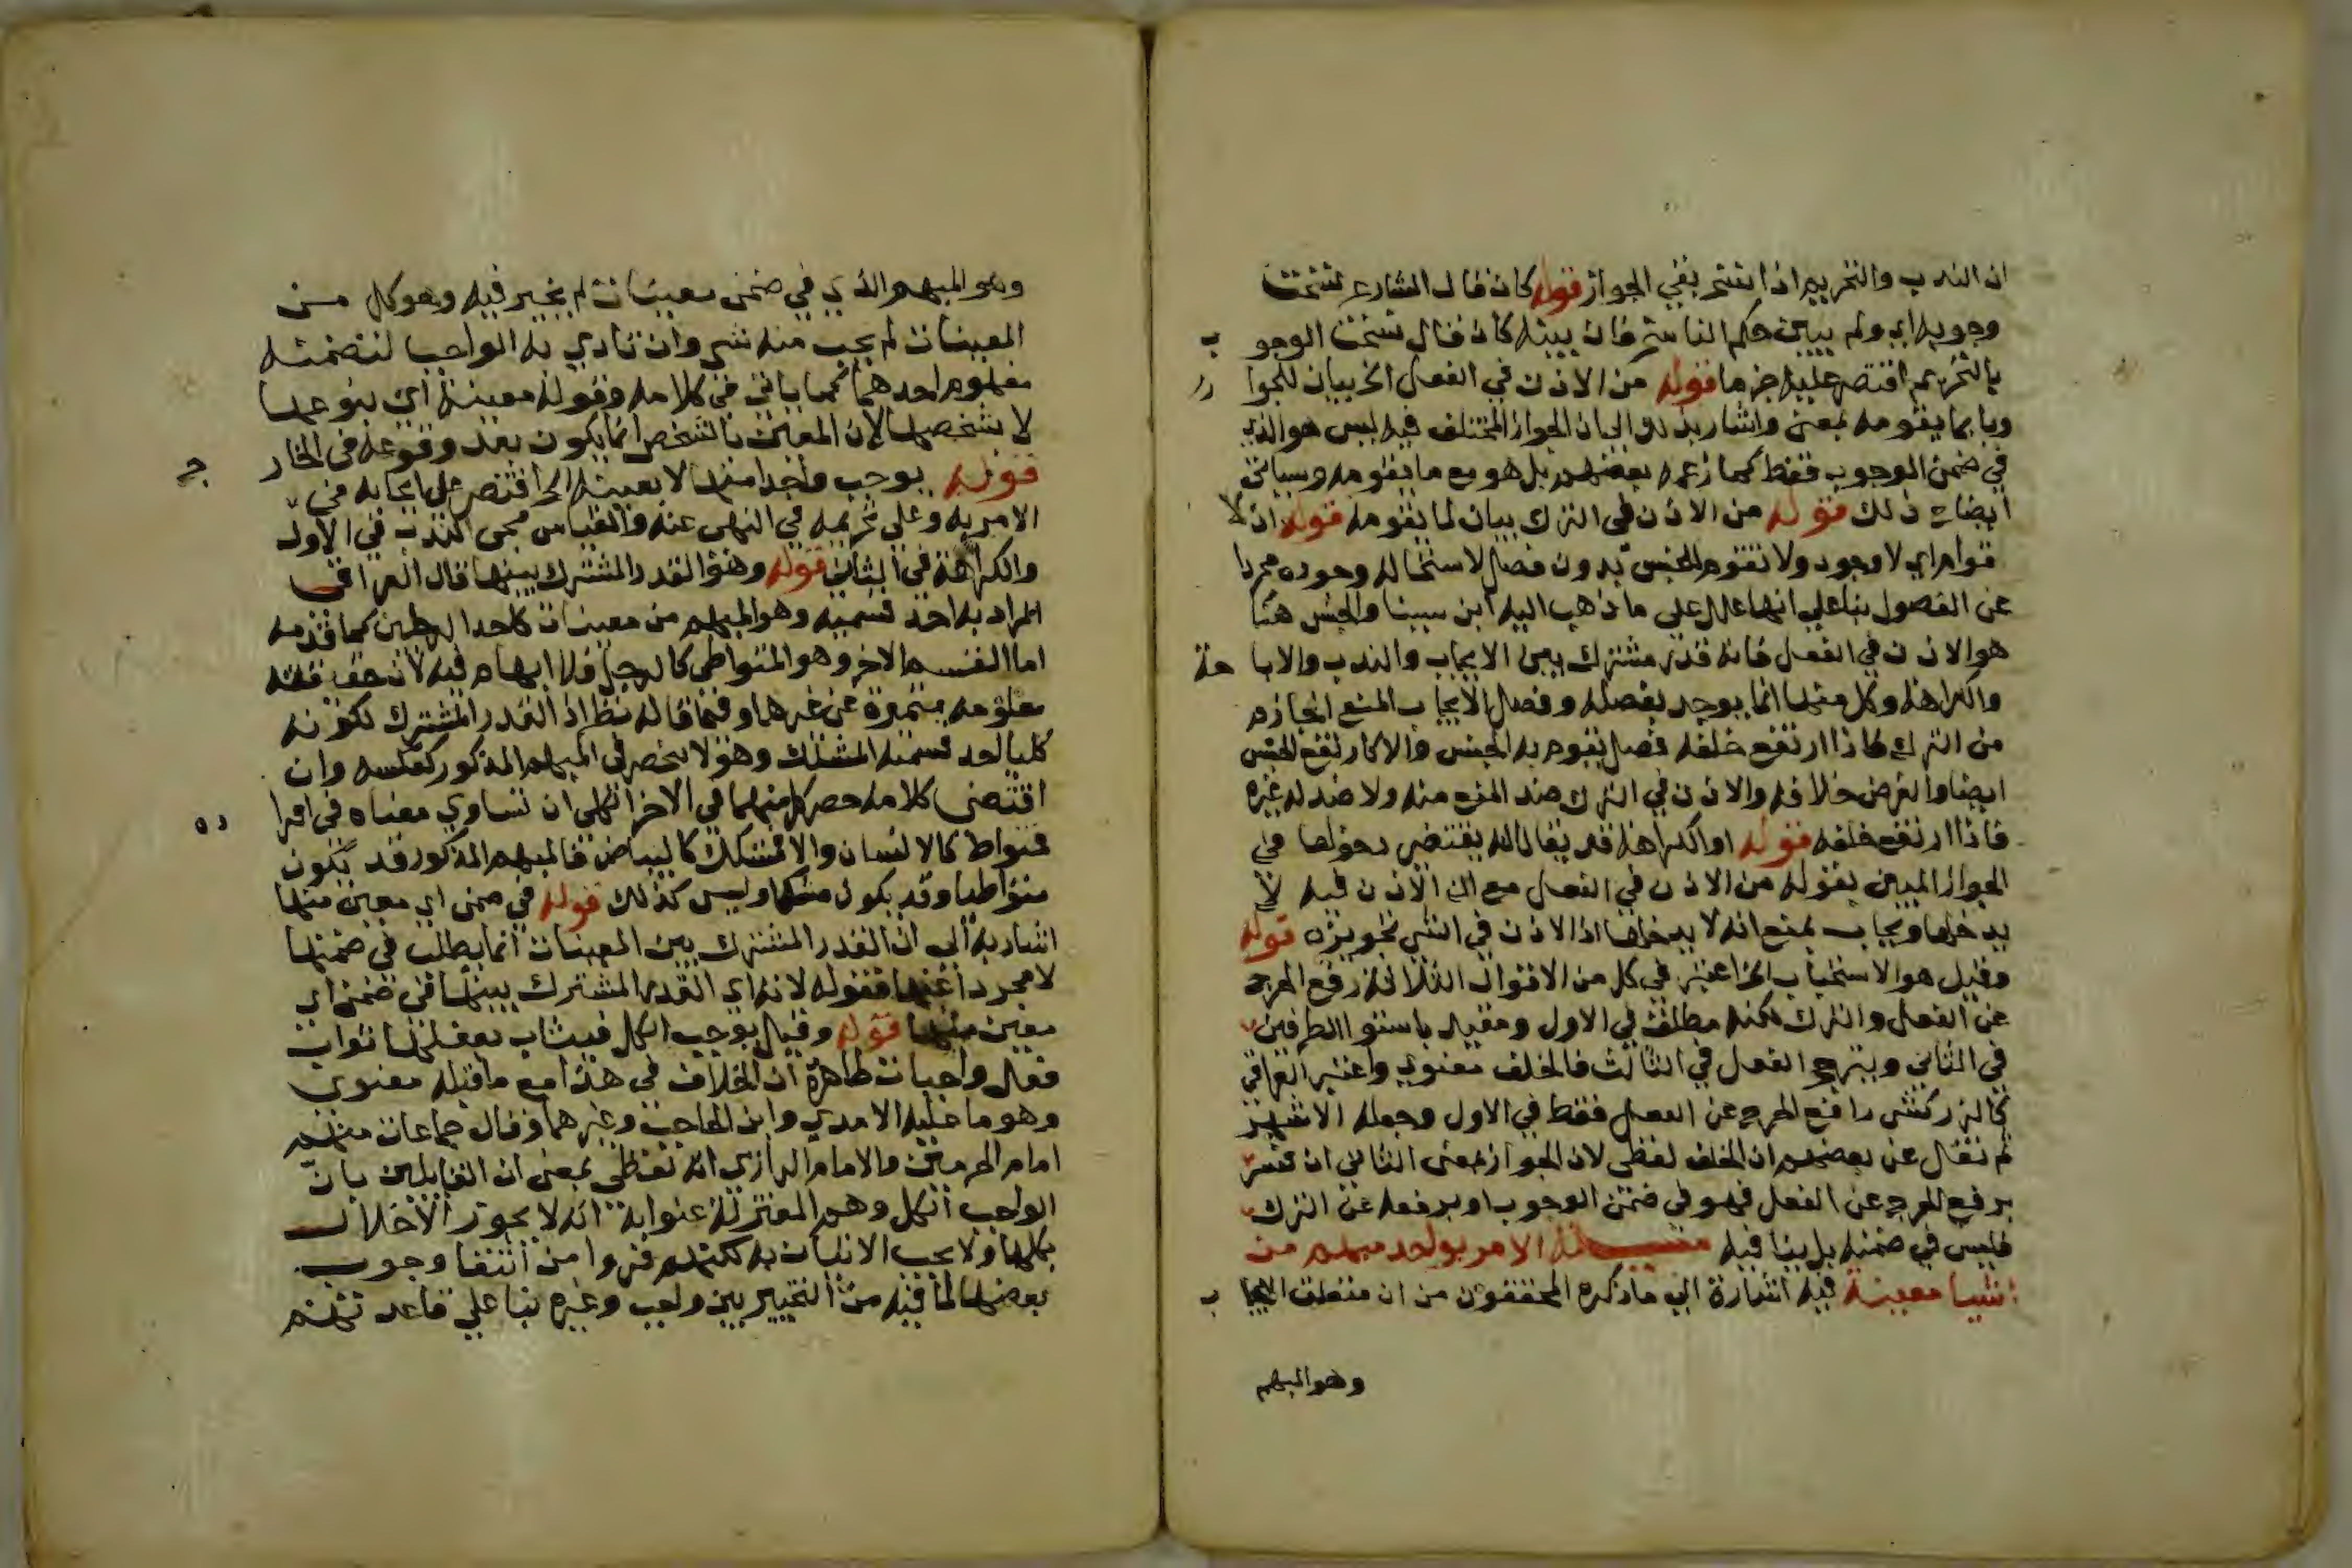 ان الندب والتحريم اذا نتم بنفي الجواز قوله كان قال الشارع نسخت
وجوبه اي ولم يبين حكم الناسخ فان بينه كان قال نسخت الوجوب
بالتحريم اقتصر عليه جزما قوله من الاذن في الفعل الخ بيان للجواز
وبا بما يقومه بمعنى واشار بذلك الى ان الجواز المختلف فيه ليس هو الذي
في ضمن الوجوب فقط كما زعمه بعضهم بل هو مع ما يقومه وسياتي
ايضاح ذلك قوله من الاذن في الترك بيان لما يقومه قوله اذ لا
قوام اي لا وجود ولا تقوم للجنس بدون فصل لاستحالة وجوده مجردا
عن الفصول بنا على انها علل على ما ذهب اليه ابن سينا والجنس هنا
هو الاذن في الفعل فانه قدر مشترك بين الايجاب والندب والاباحة
والكراهة وكل منها انما يوجد بفصله وفصل الايجاب المنع الجازم
من الترك فاذا ارتفع خلفه فصل يقوم به الجنس والا ارتفع الجنس
ايضا والفرض خلافه والاذن في الترك ضد المنع منه ولا ضد له غيره
فاذا ارتفع خلفه قوله او الكراهة قد يقال انه يقتضي دخولها في
الجواز المبين بقوله من الاذن في الفعل مع ان الاذن فيه لا
يدخلها ويجاب بمنع انه لا يدخلها اذ الاذن في الشي تجويزه قوله
وقيل هو الاستحباب الخ اعتبر في كل من الاقوال الثلاثة رفع الحرج
عن الفعل والترك لكنه مطلق في الاول ومقيد باستوا الطرفين
في الثاني وبترجح الفعل في الثالث فالخلف معنوي واعتبر العراقي
كالزركشي رافع الحرج عن الفعل فقط في الاول وجعله الاشهر
ثم نقل عن بعضهم ان الخلف لفظي لان الجواز بمعنى الثاني ان فسر
برفع الحرج عن الفعل فهو في ضمن الوجوب او برفعه عن الترك
فليس في ضمنه بل ينافيه مسئلة الامر بواحد مبهم من
اشيا معينة فيه اشارة الى ما ذكره المحققون من ان متعلق الايجاب
وهو المبهم
وهو المبهم الذي في ضمن معينات لم يخير فيه وهو كل من
المعينات لم يجب منه شي وان تادي به الواجب لتضمنه
مفهوم احدهما كما ياتي في كلامه وقوله معينة اي بنوعها
لا شخصها لان المعين بالشخص انما يكون بعد وقوعه في الخارج
قوله يوجب واحدا منها لا بعينه الخ اقتصر على ايجابه في
الامر به وعلى تحريمه في النهي عنه والقياس مجي الندب في الاول
والكراهة في الثاني قوله وهو القدر المشترك بينها قال العراقي
المراد به احد قسميه وهو المبهم من معينات كاحد الرجلين كما قدمه
اما القسم الاخر وهو المتواطي كالرجل فلا ابهام فيه لان حقيقته
معلومة متميزة عن غيرها وفيما قاله نظر اذ القدر المشترك لكونه
كليا احد قسميه المشكك وهو لا ينحصر في المبهم المذكور كعكسه وان
اقتضى كلامه حصر كل منهما في الاخر اذ الكلي ان تساوي معناه في افراده
فتواط كالانسان والا فمشكك كالبياض فالمبهم المذكور قد يكون
متواطيا وقد يكون مشككا وليس كذلك قوله في ضمن اي معين منها
اشار به الى ان القدر المشترك بين المعينات انما يطلب في ضمنها
لا مجردا عنها فقوله لانه اي القدر المشترك بينها في ضمن اي
معين منها قوله وقيل يوجب الكل فيثاب بفعلها ثواب
فعل واجبات ظاهره ان الخلاف في هذا مع ما قبله معنوي
وهو ما عليه الامدي وابن الحاجب وغيرهما وقال جماعات منهم
امام الحرمين والامام الرازي انه لفظي بمعنى ان القايلين بان
الواجب الكل وهم المعتزلة عنوا به انه لا يجوز الاخلال
بكلها ولا يجب الاتيان به لكنهم فروا من انتفا وجوب
بعضها لما فيه من التخيير بين واجب وغيره بنا على قاعدتهم